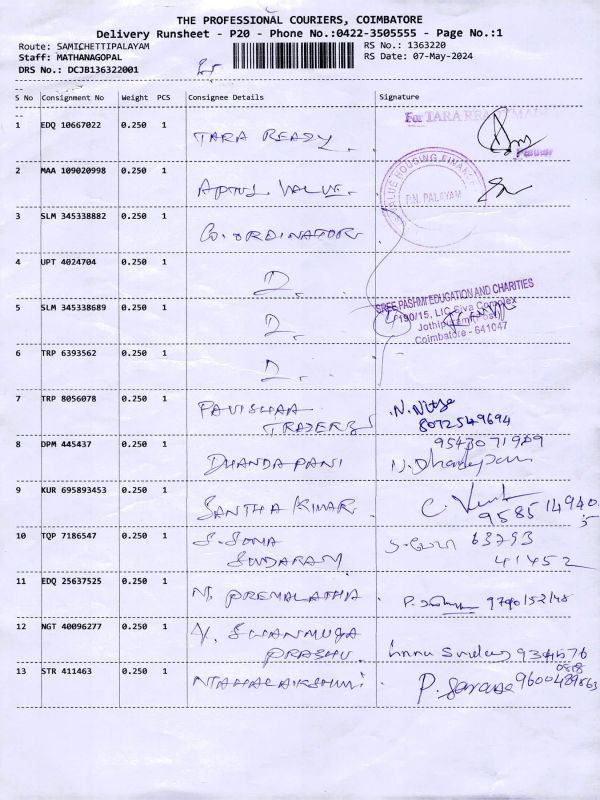 THE PROFESSIONAL COURIERS, COIMBATORE
Delivery Runsheet - P20 - Phone No.:0422-3505555 - Page No.:1
Route: SAMICHETTIPALAYAM
RS No.: 1363220
Staff: MATHANAGOPAL
RS Date: 07-May-2024
DRS No.: DCJB136322001
S No Consignment No Weight PCS Consignee Details Signature
For TARA
1 EDQ 10667022 0.250 1 TARA READY
2 MAA 109020998 0.250 1 VALUE
VALUE HOUSING FINANCE
P.N. PALAYAM
3 SLM 345338882 0.250 1 CO.ORDINATOR
4 UPT 4024704 0.250 1 D.
SREE PASHMI EDUCATION AND CHARITIES
5 SLM 345338689 0.250 1 D. 190/15, LIC Siva Complex
Coimbatore - 641047
6 TRP 6393562 0.250 1 D.
7 TRP 8056078 0.250 1 PAVISHAA
TRADERS
8072549694
8 DPM 445437 0.250 1 DHANDAPANI
N. Dhandapani
9 KUR 695893453 0.250 1 SANTHA KUMAR
10 TQP 7186547 0.250 1 S. SOMA
SUNDARAM
63793
41452
11 EDQ 25637525 0.250 1 PREMALATHA
12 NGT 40096277 0.250 1 V. SHANMUGA
PRABHU
13 STR 411463 0.250 1 MAHALAKSHMI